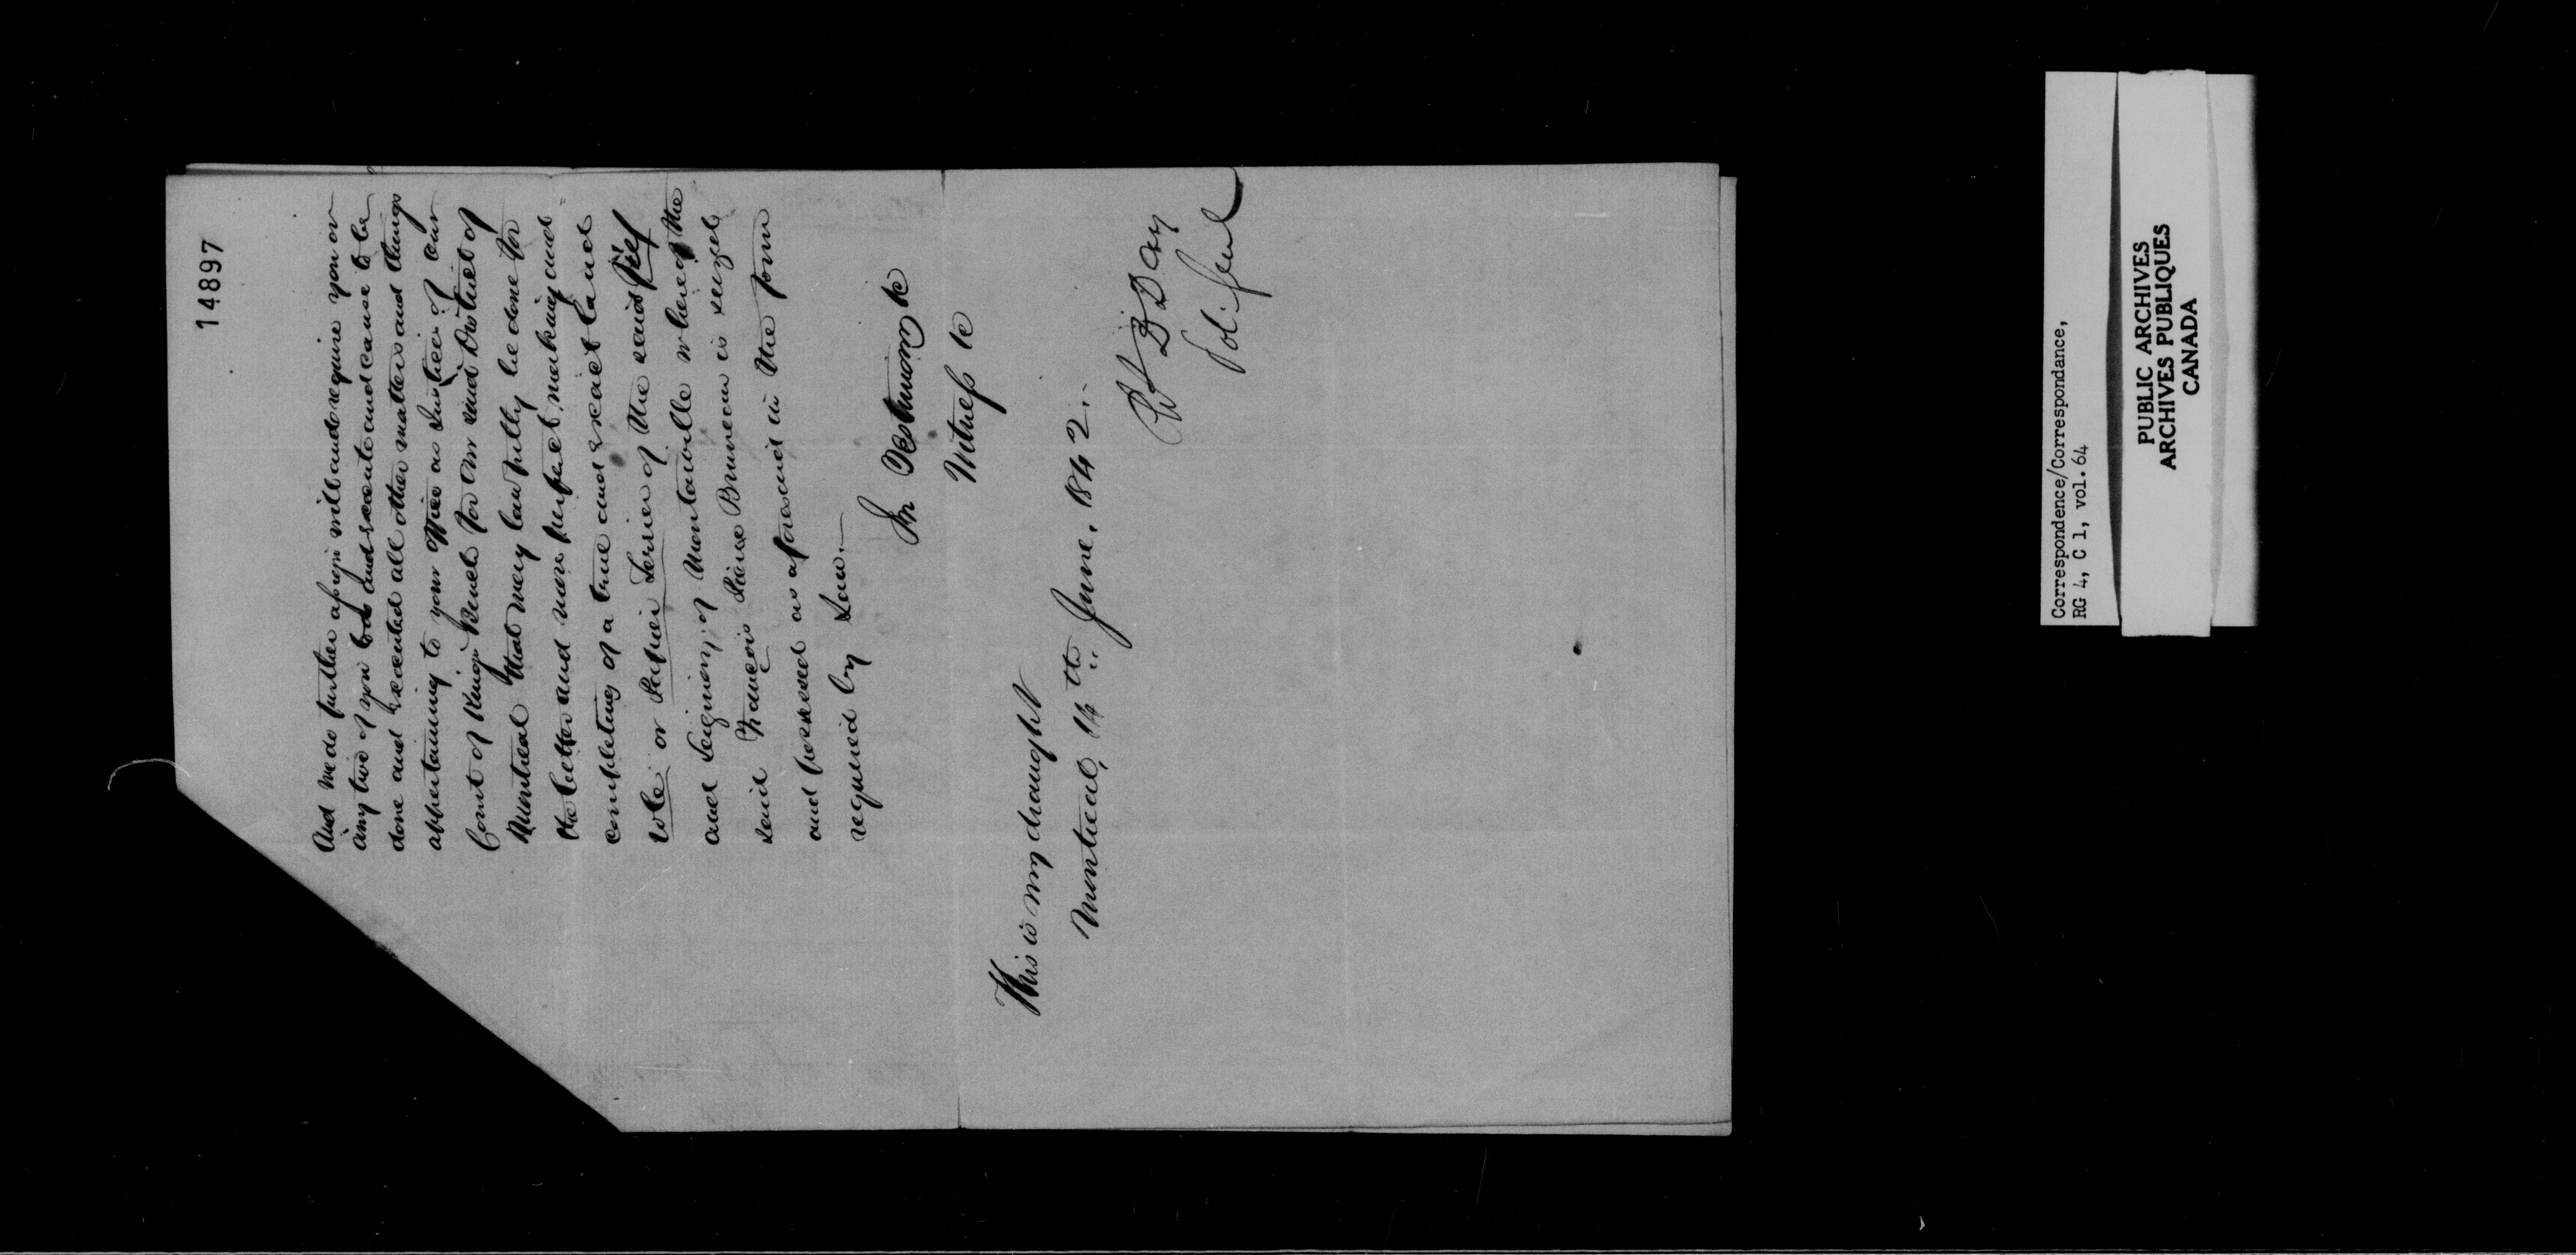 14897
And We do further assign will and require you or
any two of you to do and execute and cause to be
done and executed all other matters and things
appertaining to your office as Justices of our
Court of King's Bench for our said District of
Montreal that may lawfully be done for
the better and more perfect making and
completing of a true and exact land
role or Papier Terrier of the said fief
and Seigniory of Montarville whereof the
said François Pierre Bruneau is seized
and possessed as aforesaid in the form
required by Law.—
In Testimony &c
Witness &c
This is my draught
Montreal, 14th June, 1842.
Day
Sol. Genl
Correspondence/Correspondance,
RG 4, C 1, vol. 64
PUBLIC ARCHIVES
ARCHIVES PUBLIQUES
CANADA